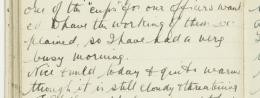 one of the "cups" for our officers want
ed to have the working of them ex
plained, so I have had a very
busy morning.
Nice & mild today & quite warm
though it is still cloudy & threatening